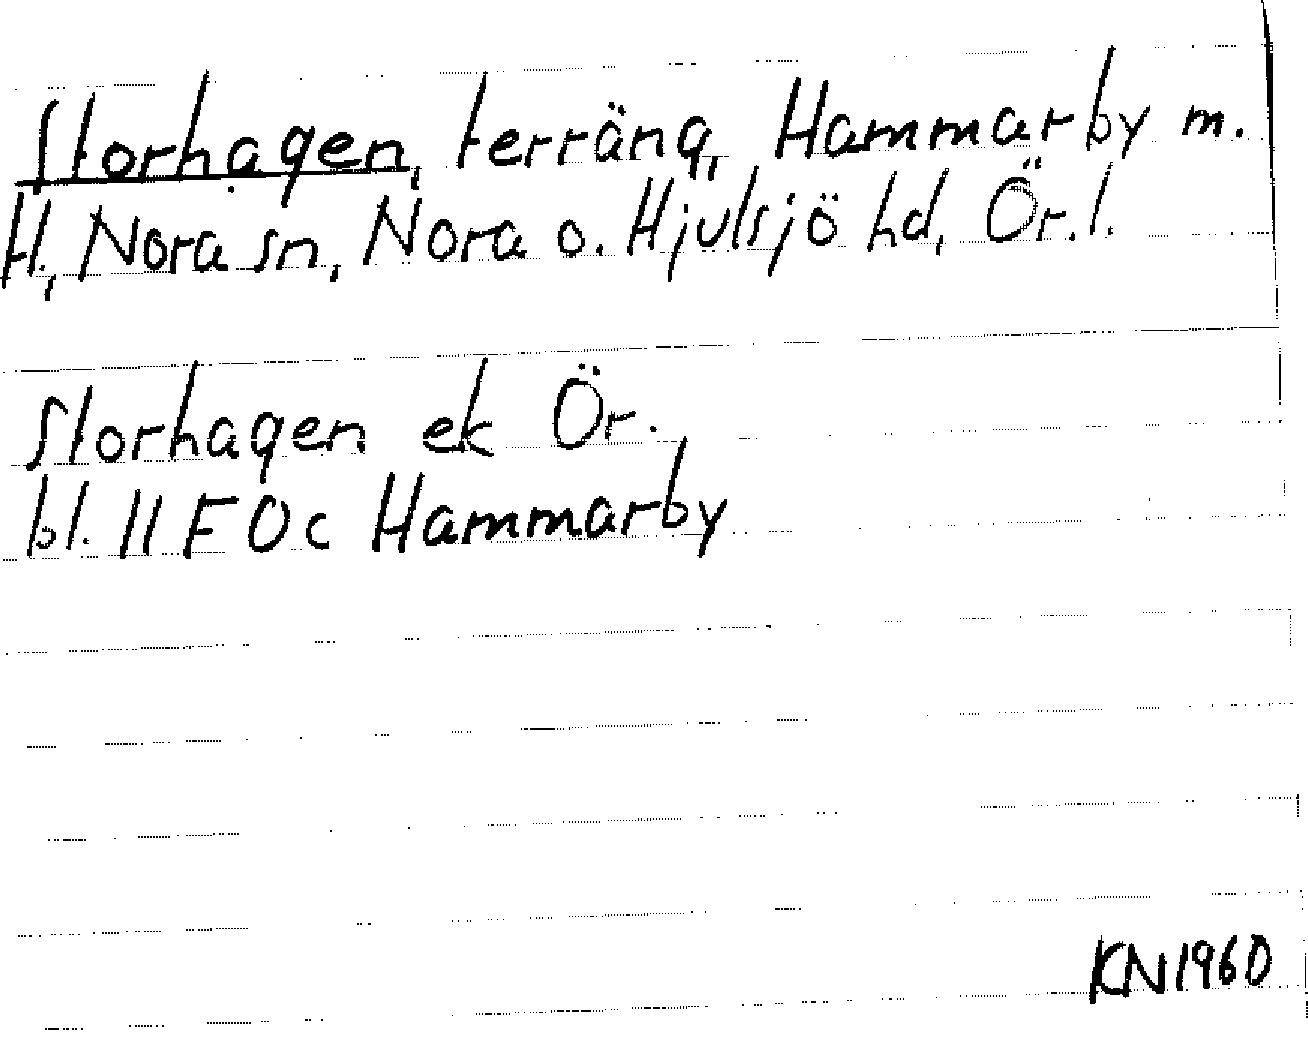 Storhagen, terräng, Hammarby m.
H., Nora sn, Nora o. Hjulsjö hd, Ör.l.
Storhagen ek Ör.
bl. 11 F 0c Hammarby
KN1960